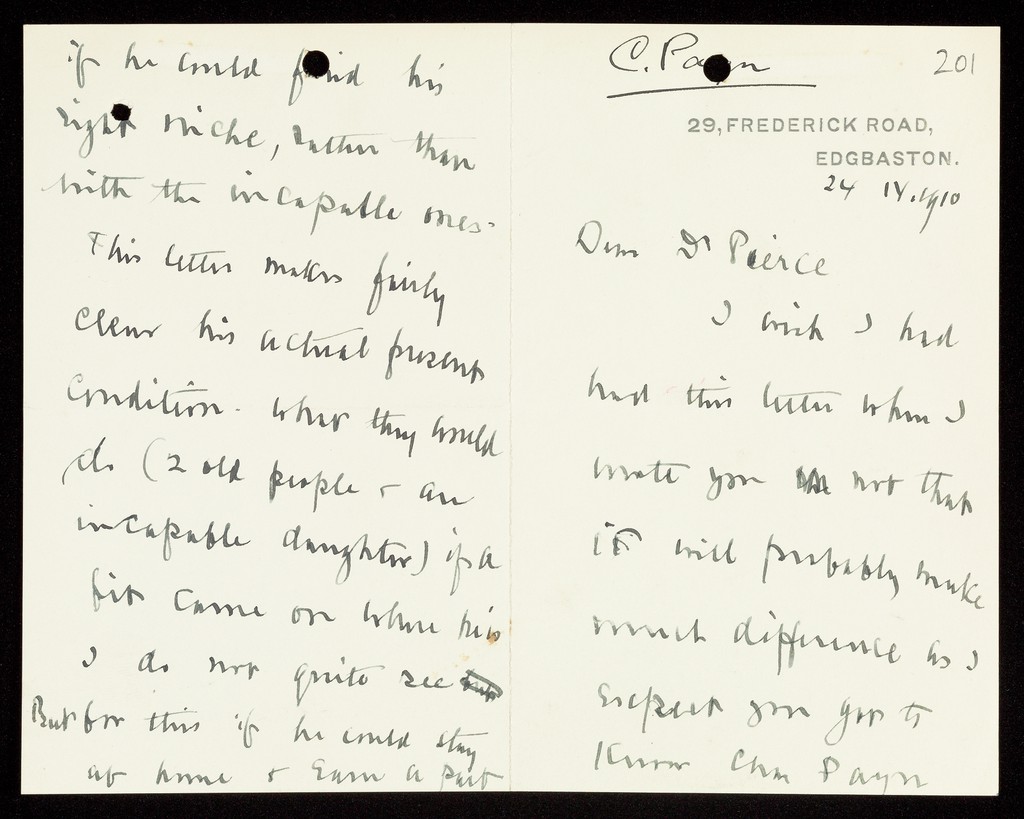 C. Payn
201
29, FREDERICK ROAD,
EDGBASTON.
24 IV. 1910
Dear Dr Pierce
I wish I had
had this letter when I
wrote you not that
it will probably make
much difference as I
expect you got to
know Chas Payn
if he could find his
right niche, rather than
with the incapable ones.
This letter makes fairly
clear his actual present
condition. What they would
do (2 old people & an
incapable daughter) if a
fit came on when
I do not quite see
But for this if he could stay
at home & earn a part